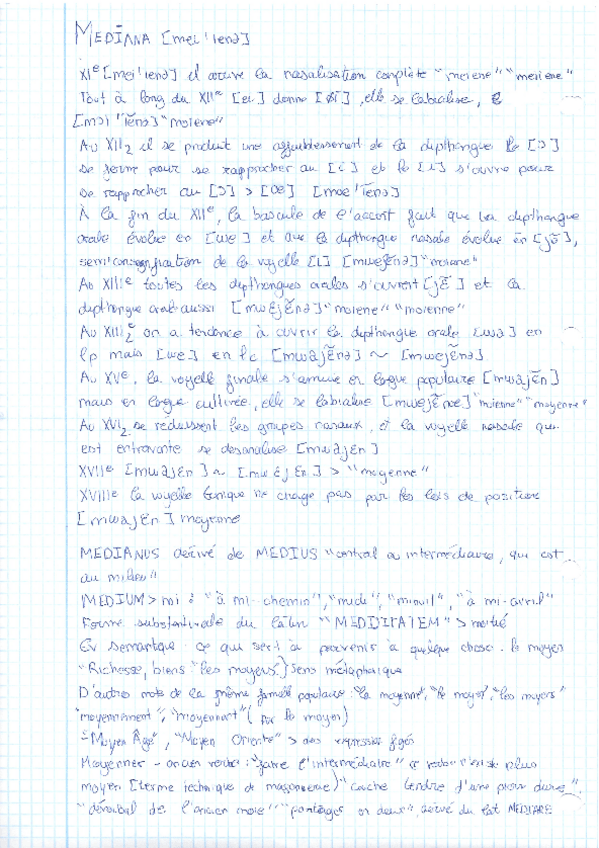 MEDIĀNA [mei'ienə]
XIe [mei'ienə] il arrive la nasalisation complète "meiene" "meriene"
Tout à long du XIIe [ei] donne [ɔi], elle se labialise,
[mɔi'iẽnə] "moiene"
Au XII2 il se produit une affaiblissement de la dipthongue le [ɔ]
se ferme pour se rapprocher au [i] et le [i] s'ouvre pour
se rapprocher au [ɔ] > [oe] [moe'iẽnə]
À la fin du XIIe, la bascule de l'accent fait que la dipthongue
orale évolue en [we] et que la dipthongue nasale évolue en [jẽ],
semiconsonnification de la voyelle [i] [mwejẽnə] "moiene"
Au XIIIe toutes les dipthongues orales s'ouvrent [jɛ̃] et la
dipthongue orale aussi [mwɛjɛ̃nə] "moiene" "moienne"
Au XIII2e on a tendance à ouvrir la dipthongue orale [wa] en
lp mais [we] en lc [mwajɛ̃nə] ~ [mwejɛ̃nə]
Au XVe, la voyelle finale s'amuie en langue populaire [mwajɛ̃n]
mais en langue cultivée, elle se labialise [mwejɛ̃nœ] "moienne" "moyenne"
Au XVI2 se réduissent les groupes nasaux, et la voyelle nasale que
est entravante se desnasalise [mwajɛn]
XVIIe [mwajɛn] ~ [mwɛjɛn] > "moyenne"
XVIIIe la voyelle tonique ne change pas par les lois de position
[mwajɛn] moyenne
MEDIANUS dérivé de MEDIUS "central ou intermédiaire, qui est
au milieu"
MEDIUM > mi : "à mi-chemin", "midi", "minuit", "à mi-avril"
Forme substantivale du latin "MEDIETATEM" > moitié
Ev semantique : ce qui sert à parvenir à quelque chose : le moyen
"Richesse, biens "les moyens"} sens métaphorique
D'autres mots de la même famille populaire : "la moyenne", "le moyen", "les moyens"
"moyennement", "moyennant" (par le moyen)
"Moyen Âge", "Moyen Oriente" > des expressions figés
Moyenner - ancien verbe : "faire l'intermédiaire" ce verbe n'existe plus
moyen [terme technique de maçonnerie] "couche tendre d'une pierre dure"
"déverbal de l'ancien moie" "partager en deux", dérivé du lat MEDIARE